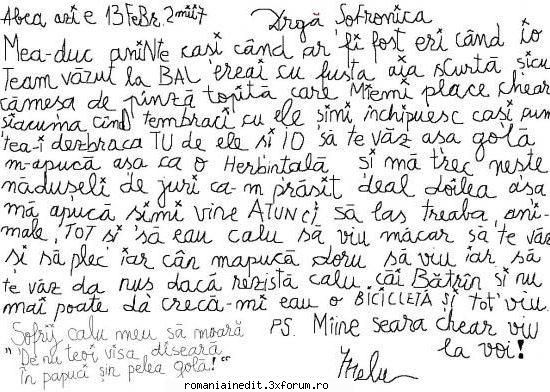 Abea azi e 13 FeBr. 2mii7
Drgă Sofronica
Mea-duc amiNte casi când ar fi fost eri când io
Team văzut la BAL ereai cu fusta aia scurtă șicu
cămesa de pinză topită care Miemi place chear
siacuma cînd tembraci cu ele șimi închipuesc cași cum
tea-i dezbraca TU de ele si IO să te văz asa golă
m-apucă așa ca o Herbintală si mă trec neste
năduseli de juri ca-m prăsit deal doilea așa
mă apucă simi vine ATUNCI să las treaba, ani-
male, TOT si să eau calu să viu măcar să te văz
si să plec iar cân mapucă doru să viu iar să
te văz da nus dacă rezistă calu căi Bătrîn si nu
mai poate da crecă-mi eau o BICICLETĂ ȘI tot viu.
PS. Miine seara chear viu
la voi!
Sofrij calu meu să moară
"De nu teoi visa diseară
În papuci șin pelea golă!"
romaniainedit.3xforum.ro